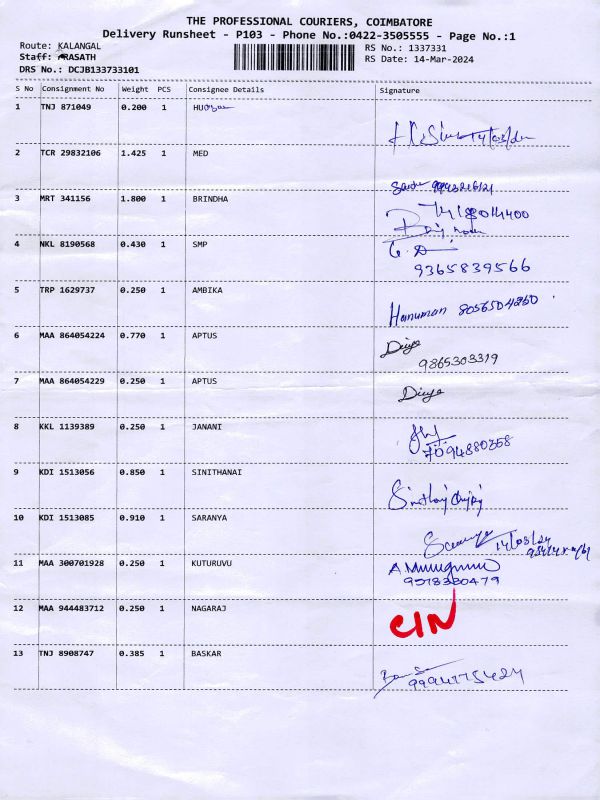 THE PROFESSIONAL COURIERS, COIMBATORE
Delivery Runsheet - P103 - Phone No.:0422-3505555 - Page No.:1
Route: KALANGAL RS No.: 1337331
Staff: PRASATH RS Date: 14-Mar-2024
DRS No.: DCJB133733101
S No Consignment No Weight PCS Consignee Details Signature
1 TNJ 871049 0.200 1 14/03/24
2 TCR 29832106 1.425 1 MED
3 MRT 341156 1.800 1 BRINDHA
4 NKL 8190568 0.430 1 SMP
9365839566
5 TRP 1629737 0.250 1 AMBIKA Hanuman 8056504260
6 MAA 864054224 0.770 1 APTUS Divya
9865303319
7 MAA 864054229 0.250 1 APTUS Divya
8 KKL 1139389 0.250 1 JANANI
7094880358
9 KDI 1513056 0.850 1 SINITHANAI
10 KDI 1513085 0.910 1 SARANYA 14/03/24
11 MAA 300701928 0.250 1 KUTURUVU A Murugan
12 MAA 944483712 0.250 1 NAGARAJ CIN
13 TNJ 8908747 0.385 1 BASKAR
9994775424